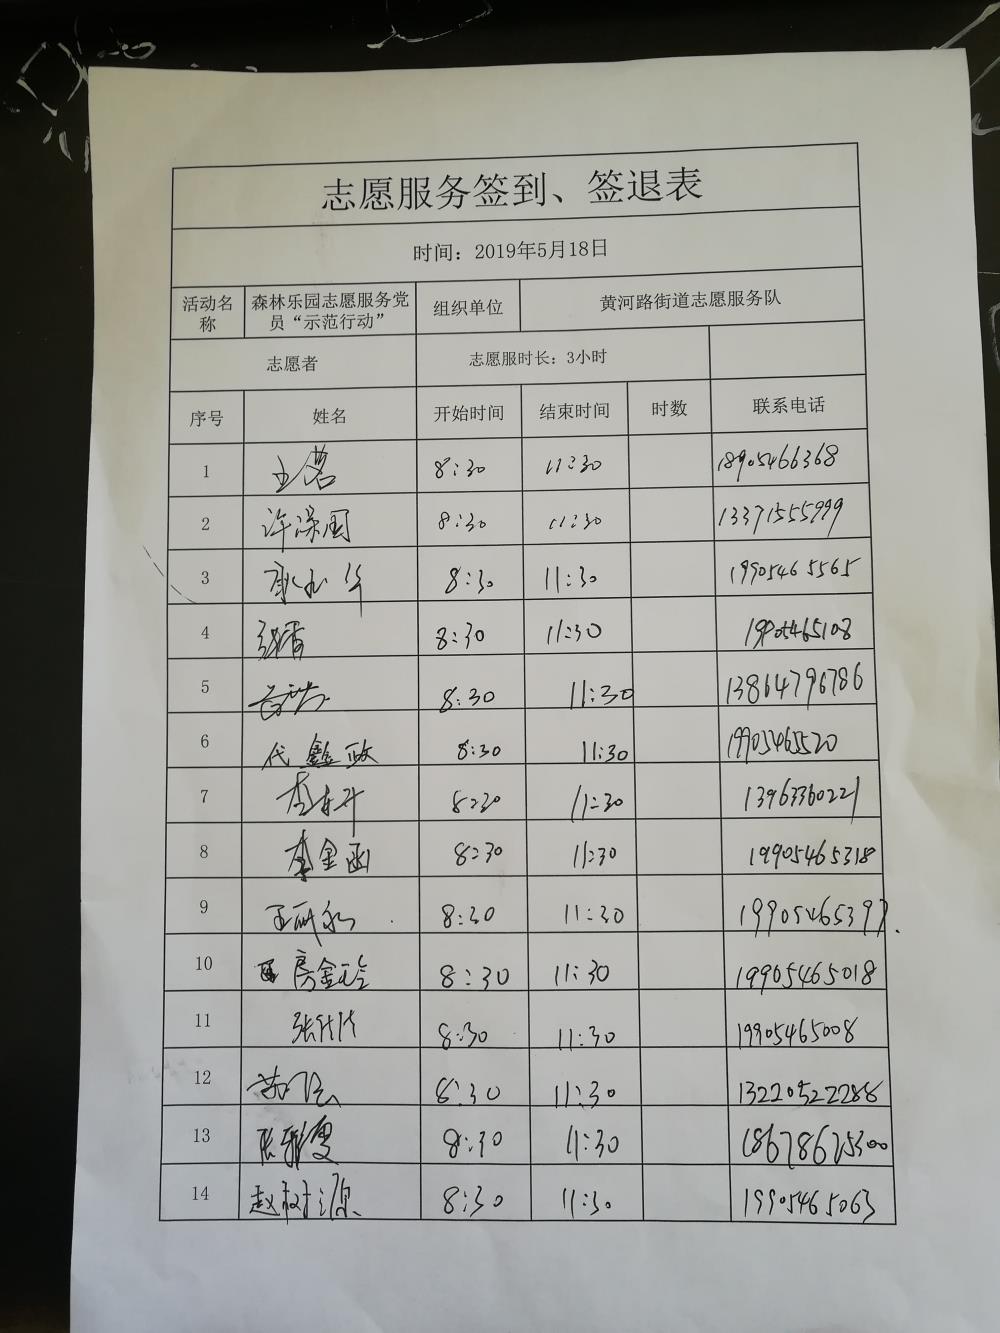 志愿服务签到、签退表
时间：2019年5月18日
活动名称 森林乐园志愿服务党员“示范行动” 组织单位 黄河路街道志愿服务队
志愿者 志愿服时长：3小时
序号 姓名 开始时间 结束时间 时数 联系电话
1 8:30 11:30 18905466368
2 许深国 8:30 11:30 13371555999
3 8:30 11:30 19905465565
4 8:30 11:30 19905465108
5 8:30 11:30 13864796786
6 代鑫政 8:30 11:30 19905465520
7 8:30 11:30 13963360221
8 李金函 8:30 11:30 19905465318
9 8:30 11:30 19905465397
10 房金玲 8:30 11:30 19905465018
11 8:30 11:30 19905465008
12 8:30 11:30 13220522288
13 张雅雯 8:30 11:30 18678675300
14 赵树源 8:30 11:30 19905465063